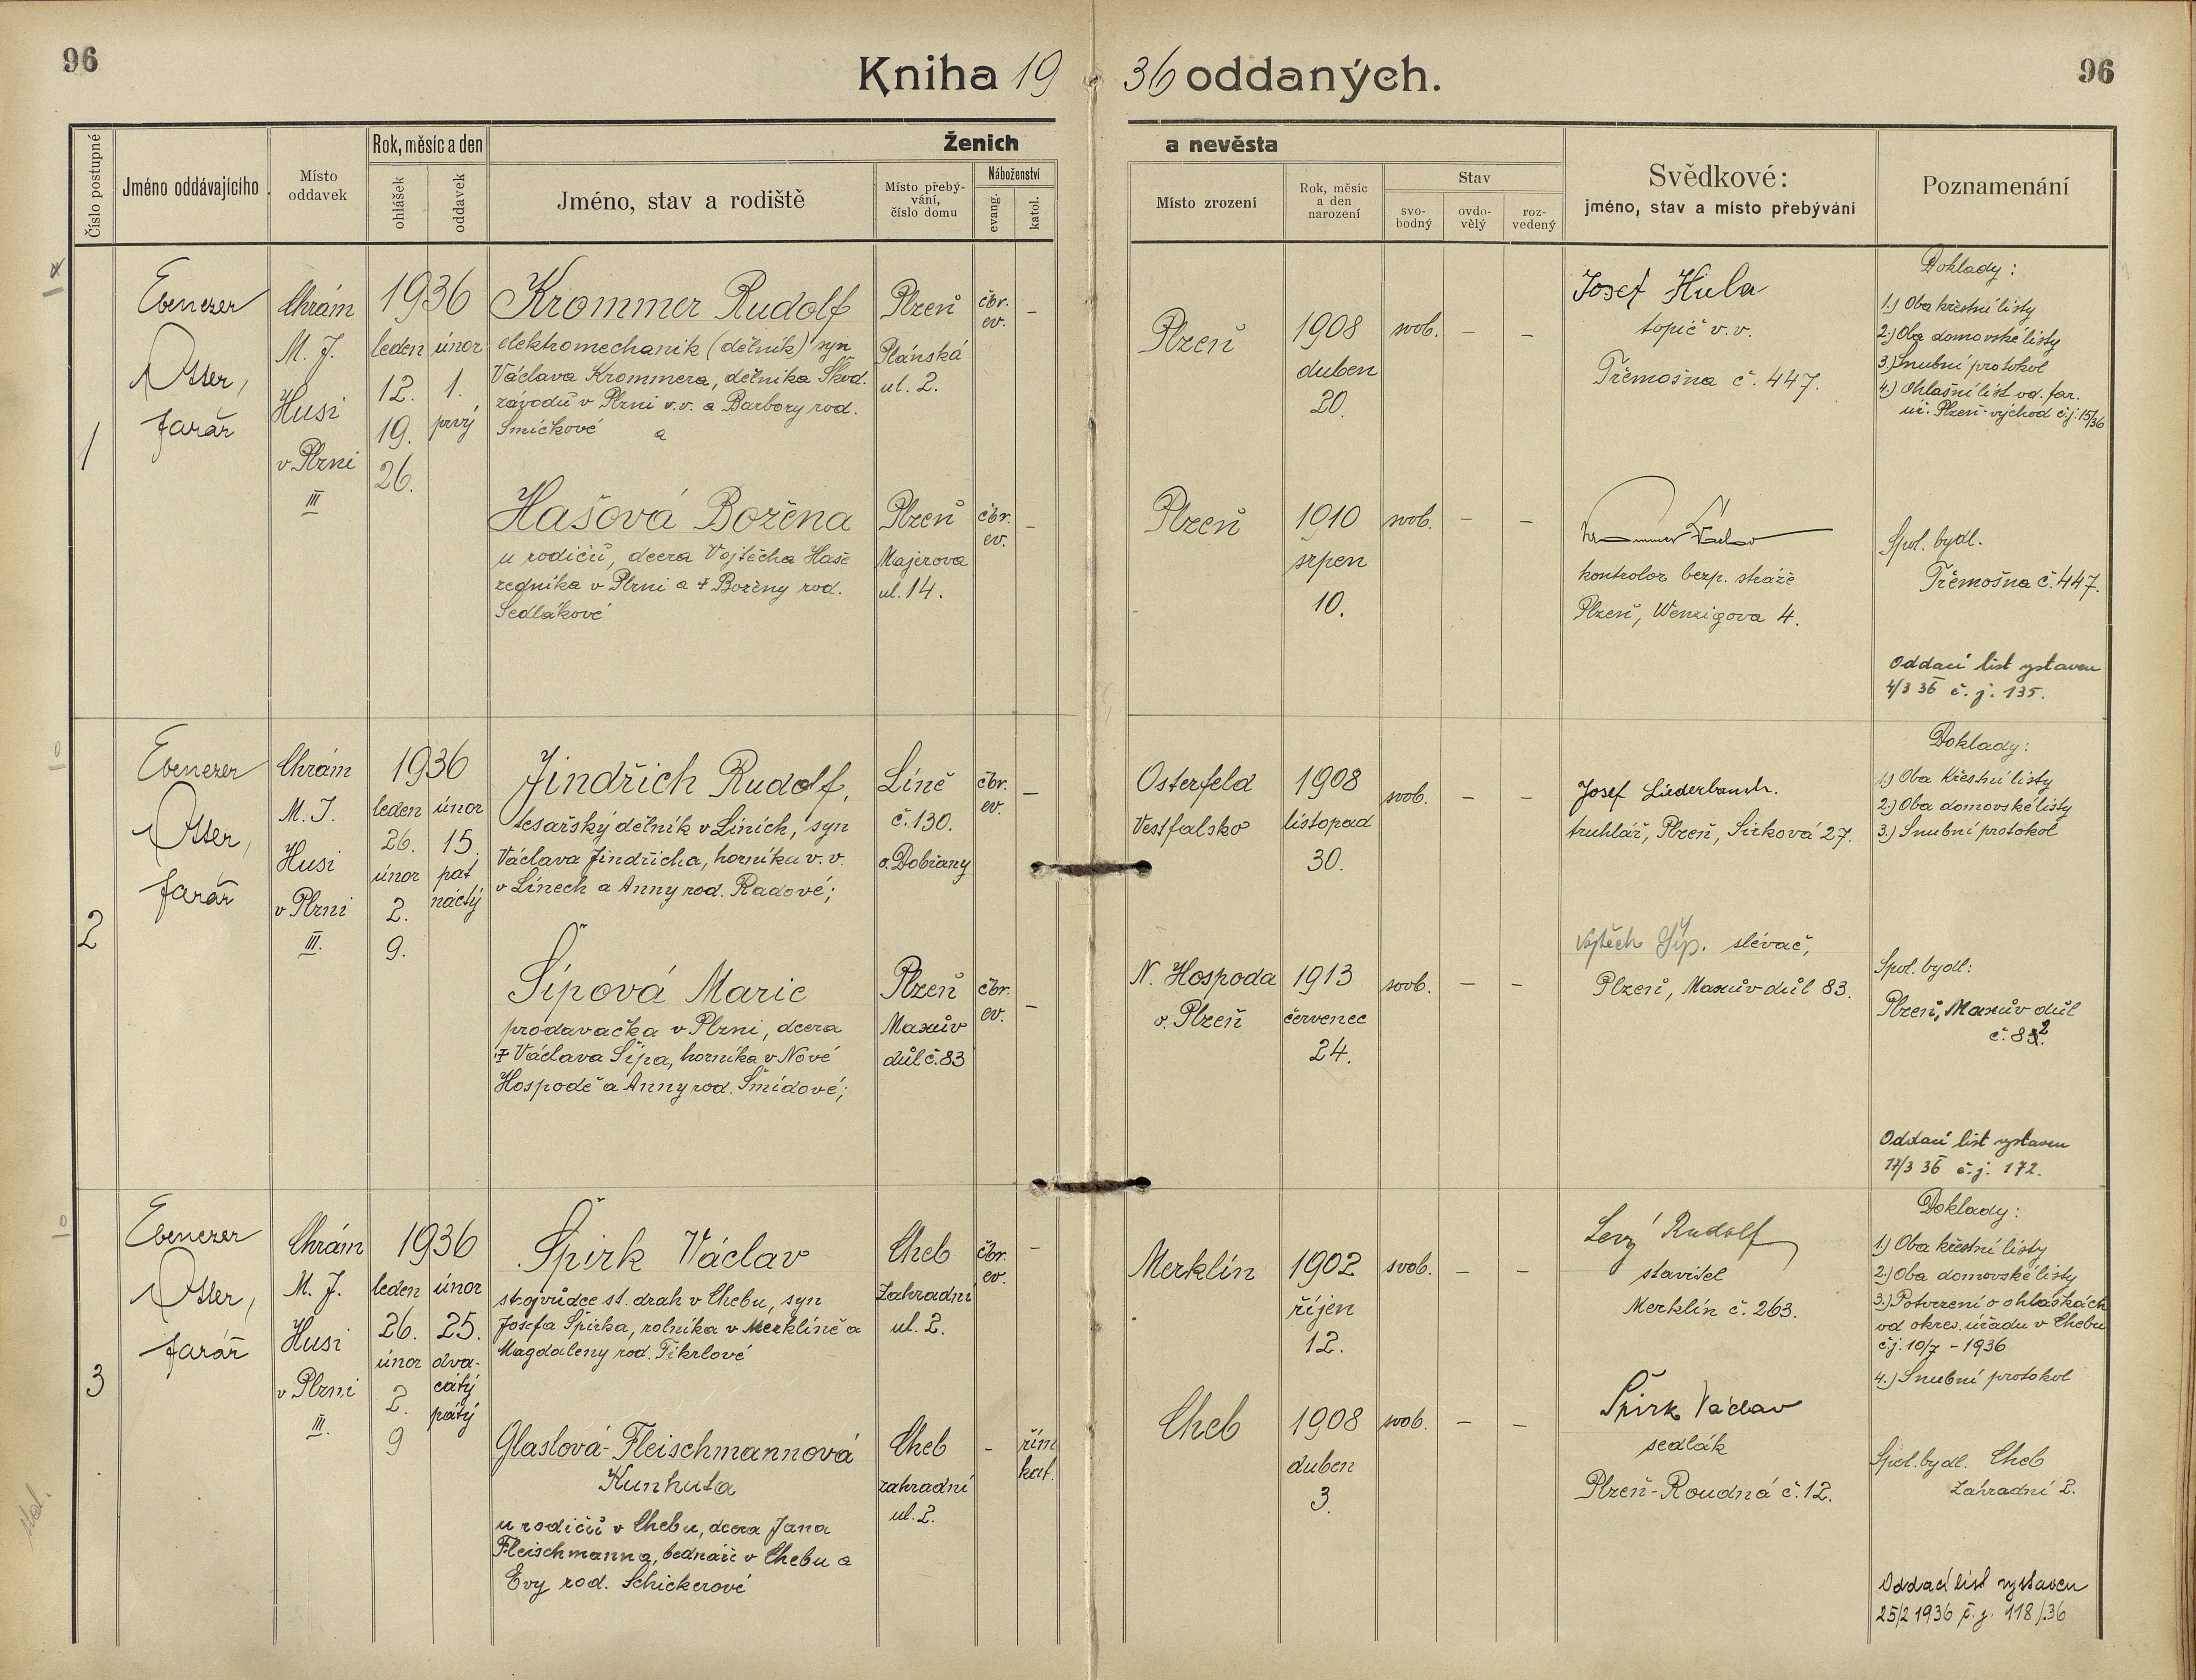 96
Kniha 19 36 oddaných.
96
Číslo postupné
Jméno oddávajícího
Místo oddavek
Rok, měsíc a den
ohlášek
oddavek
Ženich
a nevěsta
Jméno, stav a rodiště
Místo přebý-
vání,
číslo domu
Náboženství
evang.
katol.
Místo zrození
Rok, měsíc
a den
narození
Stav
svo-
bodný
ovdo-
vělý
roz-
vedený
Svědkové:
jméno, stav a místo přebývání
Poznamenání
1
Ebenezer
Otter,
farář
Chrám
M. J.
Husi
v Plzni
III
1936
leden
12.
19.
26.
únor
1.
prvý
Krommer Rudolf
elektromechanik (dělník) syn
Václava Krommera, dělníka Škod.
závodů v Plzni v.v. a Barbory rod.
Smíčkové a
Plzeň
Plánská
ul. 2.
čbr.
ev.
–
Plzeň
1908
duben
20.
svob.
–
–
Josef Hula
topič v.v.
Třemošna č. 447.
Doklady:
1.) Oba křestní listy
2.) Oba domovské listy
3.) Snubní protokol
4.) Ohlašní list od far.
úř. Plzeň-východ č.j. 15/36
Hašová Božena
u rodičů, dcera Vojtěcha Haše
zedníka v Plzni a † Boženy rod.
Sedlákové
Plzeň
Majerova
ul. 14.
čbr.
ev.
–
Plzeň
1910
srpen
10.
svob.
–
–
Krommer Václav
kontrolor bezp. stráže
Plzeň, Wenzigova 4.
Spol. bydl.
Třemošna č. 447.
Oddací list vystaven
4/3 36 č. j. 135.
2
Ebenezer
Otter,
farář
Chrám
M. J.
Husi
v Plzni
III.
1936
leden
26.
únor
2.
9.
únor
15.
pat
náctý
Jindřich Rudolf,
tesařský dělník v Líních, syn
Václava Jindřicha, horníka v. v.
v Línech a Anny rod. Radové;
Líně
č. 130.
o. Dobřany
čbr.
ev.
–
Osterfeld
Vestfalsko
1908
listopad
30.
svob.
–
–
Josef Liederbauch.
truhlář, Plzeň, Sirková 27.
Doklady:
1.) Oba křestní listy
2.) Oba domovské listy
3.) Snubní protokol
Šípová Marie
prodavačka v Plzni, dcera
† Václava Šípa, horníka v Nové
Hospodě a Anny rod. Šmídové;
Plzeň
Maxův
důl č. 83
čbr.
ev.
–
N. Hospoda
o. Plzeň
1913
červenec
24.
svob.
–
–
Vojtěch Šíp. slévač,
Plzeň, Maxův důl 83.
Spol. bydl:
Plzeň, Maxův důl
č. 82.
Oddací list vystaven
17/3 36 č. j. 172.
3
Ebenezer
Otter,
farář
Chrám
M. J.
Husi
v Plzni
III.
1936
leden
26.
únor
2.
9
únor
25.
dva-
cátý
pátý
Špirk Václav
strojvůdce st. drah v Chebu, syn
Josefa Špirka, rolníka v Merklíně a
Magdaleny rod. Fikrlové
Cheb
Zahradní
ul. 2.
čbr.
ev.
–
Merklín
1902
říjen
12.
svob.
–
–
Levý Rudolf
stavitel
Merklín č. 263.
Doklady:
1.) Oba křestní listy
2.) Oba domovské listy
3.) Potvrzení o ohláškách
od okres. úřadu v Chebu
č.j. 10/7 – 1936
4.) Snubní protokol
Glaslová-Fleischmannová
Kunhuta
u rodičů v Chebu, dcera Jana
Fleischmanna, bednáře v Chebu a
Evy rod. Schickerové
Cheb
zahradní
ul. 2.
–
řím
kat.
Cheb
1908
duben
3.
svob.
–
–
Špirk Václav
sedlák
Plzeň-Roudná č. 12.
Spol. bydl. Cheb
Zahradní 2.
Oddací list vystaven
25/2 1936 č. j. 118/36